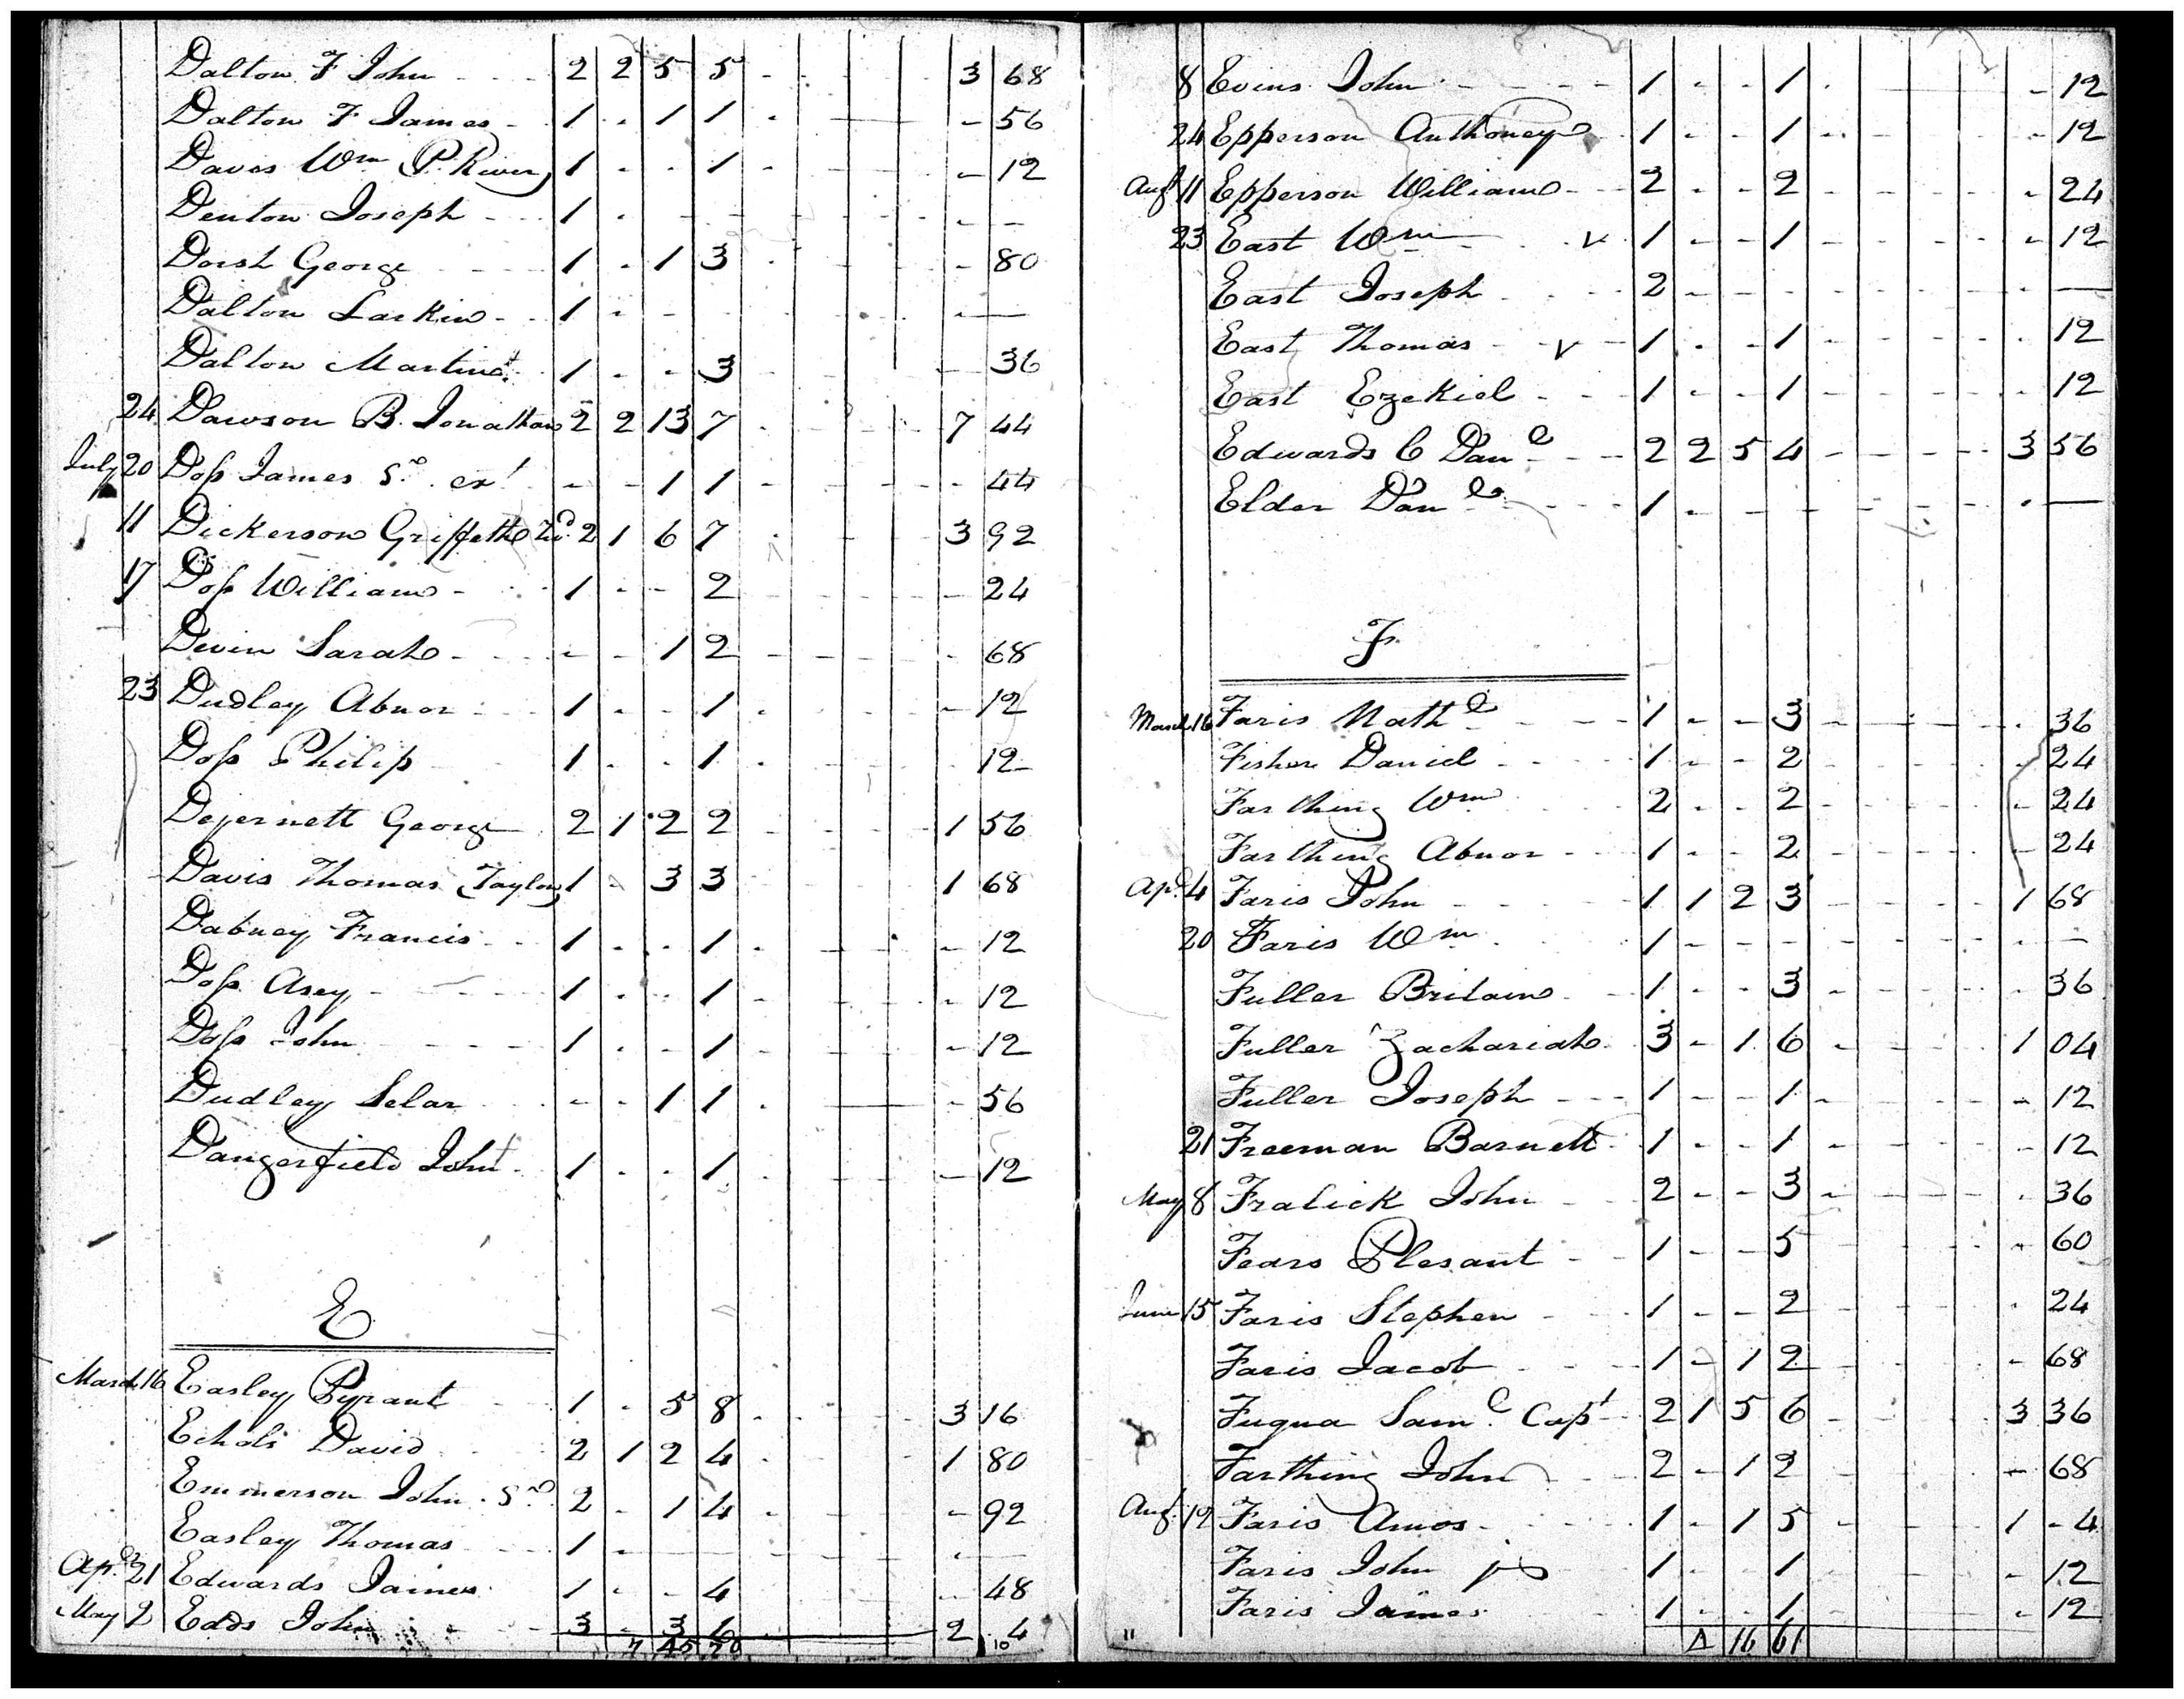 Dalton F John - - - 2 2 5 5 - - - - 3 68
Dalton F James - 1 - 1 1 - - 56
Davis Wm P. River 1 - - 1 - - 12
Denton Joseph - - 1 - - - - - - - -
Dorst George - - 1 - 1 3 - - 80
Dalton Larkin - - 1 - - - -
Dalton Martin 1 - - 3 - - 36
24 Dawson B. Jonathan 2 2 13 7 - - - 7 44
July 20 Doſs James Sr. ext - - 1 1 - - - - 44
11 Dickerson Griffeth 2 1 6 7 - - 3 92
17 Doſs William - 1 - - 2 - - - - 24
Devin Sarah - - - - 1 2 - - - - 68
23 Dudley Abner - 1 - - 1 - - - 12
Doſs Philip 1 - - 1 - - 12
Dejernett George 2 1 2 2 - - - 1 56
Davis Thomas (Taylor) 1 - 3 3 - - 1 68
Dabney Francis - - 1 - - 1 - - - - 12
Doſs Asey - - - 1 - - 1 - - - 12
Doſs John - - - 1 - - 1 - - - - 12
Dudley Selar - - 1 1 - - 56
Dangerfield John - 1 - - 1 - - 12
E
March 16 Easley Pyrant 1 - 5 8 - - - - 3 16
Echols David 2 1 2 4 - - - - 1 80
Emmerson John Sr. 2 - 1 4 - - - 92
Easley Thomas 1 - - - -
Apl. 21 Edwards James 1 - - 4 - - - 48
May 2 Eads John 3 - 3 6 2 4
7 45 70 10
8 Evins John - - - - 1 - - 1 - - 12
24 Epperson Anthoney 1 - - 1 - - - 12
Augt 11 Epperson William - - 2 - - 2 - - - - - 24
23 East Wm - - v 1 - - 1 - - - - - 12
East Joseph - - - 2 - - - - - - - - -
East Thomas - v - 1 - - 1 - - - - - 12
East Ezekiel - - - 1 - - 1 - - - - - 12
Edwards C Danl - - - 2 2 5 4 - - - - 3 56
Elder Danl - - - 1 - - - - - - - -
F
March 16 Faris Nathl - - - 1 - - 3 - - - - - 36
Fisher Daniel - - - 1 - - 2 - - - - - 24
Farthing Wm - - 2 - - 2 - - - - - 24
Farthing Abner - - 1 - - 2 - - - - - 24
Apl. 4 Faris John - - - 1 1 2 3 - - - - 1 68
20 Faris Wm - 1 - - - - - - - - -
Fuller Britain - - 1 - - 3 - - - - - 36
Fuller Zachariah - 3 - 1 6 - - - - 1 04
Fuller Joseph - - - 1 - - 1 - - - - - 12
21 Freeman Barnett - 1 - - 1 - - - - - 12
May 8 Fralick John - - 2 - - 3 - - - - - 36
Fears Plesant - - 1 - - 5 - - - - - 60
June 15 Faris Stephen - 1 - - 2 - - - 24
Faris Jacob - - - 1 - 1 2 - - - - - 68
Fuqua Saml. Capt - - 2 1 5 6 - - - - 3 36
Farthing John - - - 2 - 1 2 - - - - - 68
Augt. 12 Faris Amos - - - - 1 - 1 5 - - - - 1 - 4
Faris John jr 1 - - 1 - - - 12
Faris James - - 1 - - 1 - - 12
11 16 61